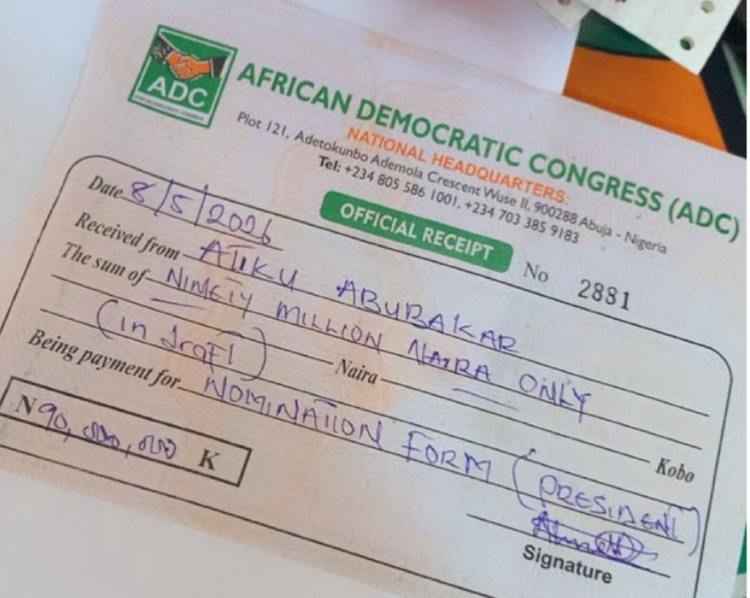 ADC
AFRICAN DEMOCRATIC CONGRESS (ADC)
NATIONAL HEADQUARTERS:
Plot 121, Adetokunbo Ademola Crescent Wuse II, 900288 Abuja - Nigeria
Tel: +234 805 586 1001, +234 703 385 9183
OFFICIAL RECEIPT
No 2881
Date 8/5/2026
Received from ATIKU ABUBAKAR
The sum of NINETY MILLION NAIRA ONLY
(in draft) Naira Kobo
Being payment for NOMINATION FORM (PRESIDENT)
N 90,000,000 K
Signature